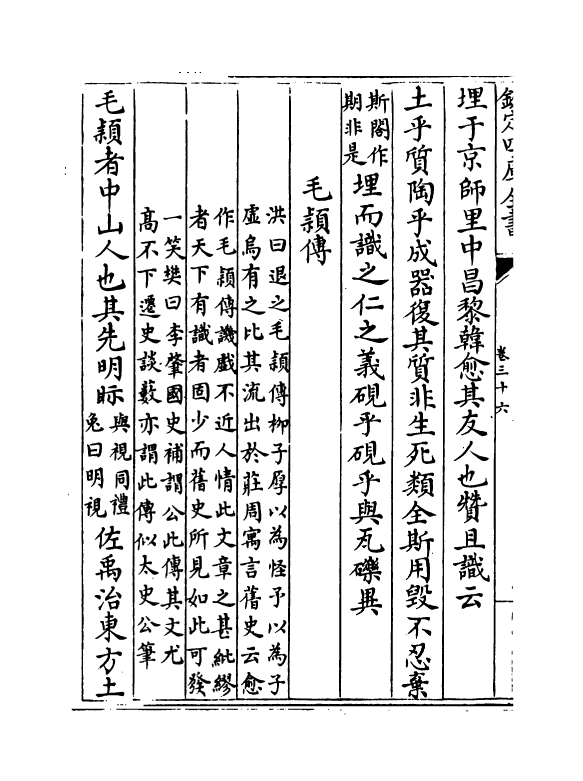 欽定四庫全書
卷三十六
埋于京師里中昌黎韓愈其友人也贊且識云
土乎質陶乎成器復其質非生死類全斯用毀不忍棄
斯閣作
期非是
埋而識之仁之義硯乎硯乎與瓦礫異
毛頴傳
洪曰退之毛頴傳柳子厚以為怪予以為子
虛烏有之比其流出於莊周寓言舊史云愈
作毛頴傳譏戲不近人情此文章之甚紕繆
者天下有識者固少而舊史所見如此可發
一笑樊曰李肇國史補謂公此傳其文尤
髙不下遷史談藪亦謂此傳似太史公筆
毛頴者中山人也其先明眎
與視同禮
兔曰明視
佐禹治東方土